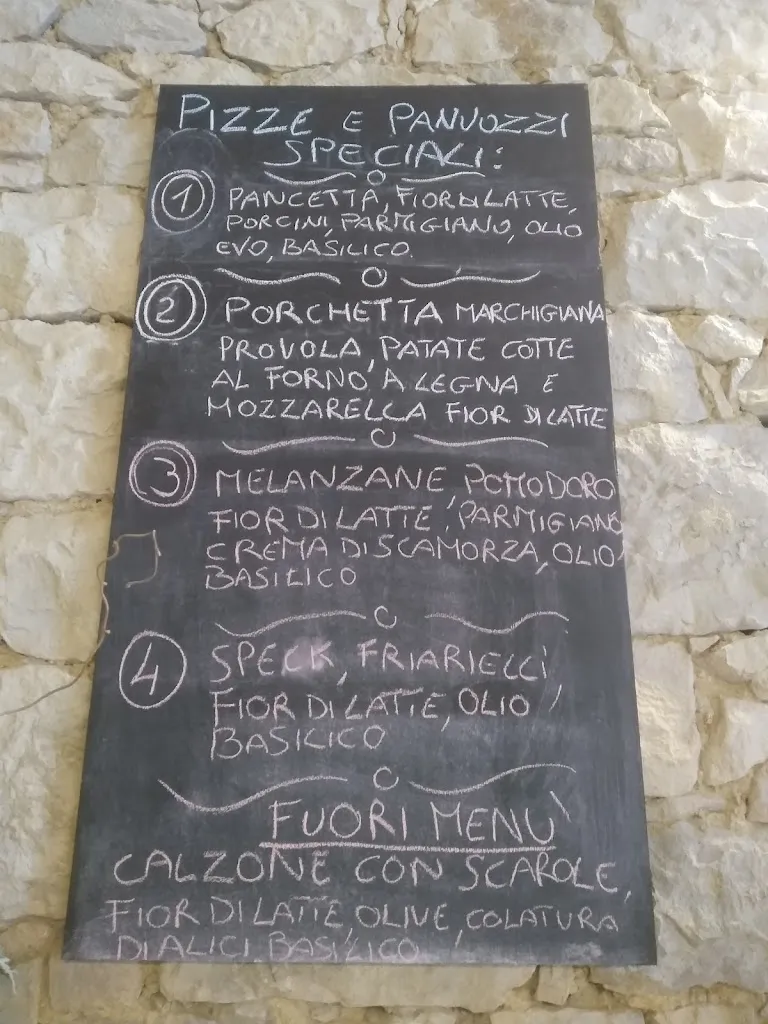 PIZZE E PANUOZZI
SPECIALI:
1 PANCETTA, FIOR DI LATTE,
PORCINI, PARMIGIANO, OLIO
EVO, BASILICO.
2 PORCHETTA MARCHIGIANA
PROVOLA, PATATE COTTE
AL FORNO A LEGNA E
MOZZARELLA FIOR DI LATTE
3 MELANZANE, POMODORO
FIOR DI LATTE, PARMIGIANO,
CREMA DI SCAMORZA, OLIO
BASILICO
4 SPECK, FRIARIELLI,
FIOR DI LATTE, OLIO,
BASILICO
FUORI MENU'
CALZONE CON SCAROLE,
FIOR DI LATTE, OLIVE, COLATURA
DI ALICI, BASILICO